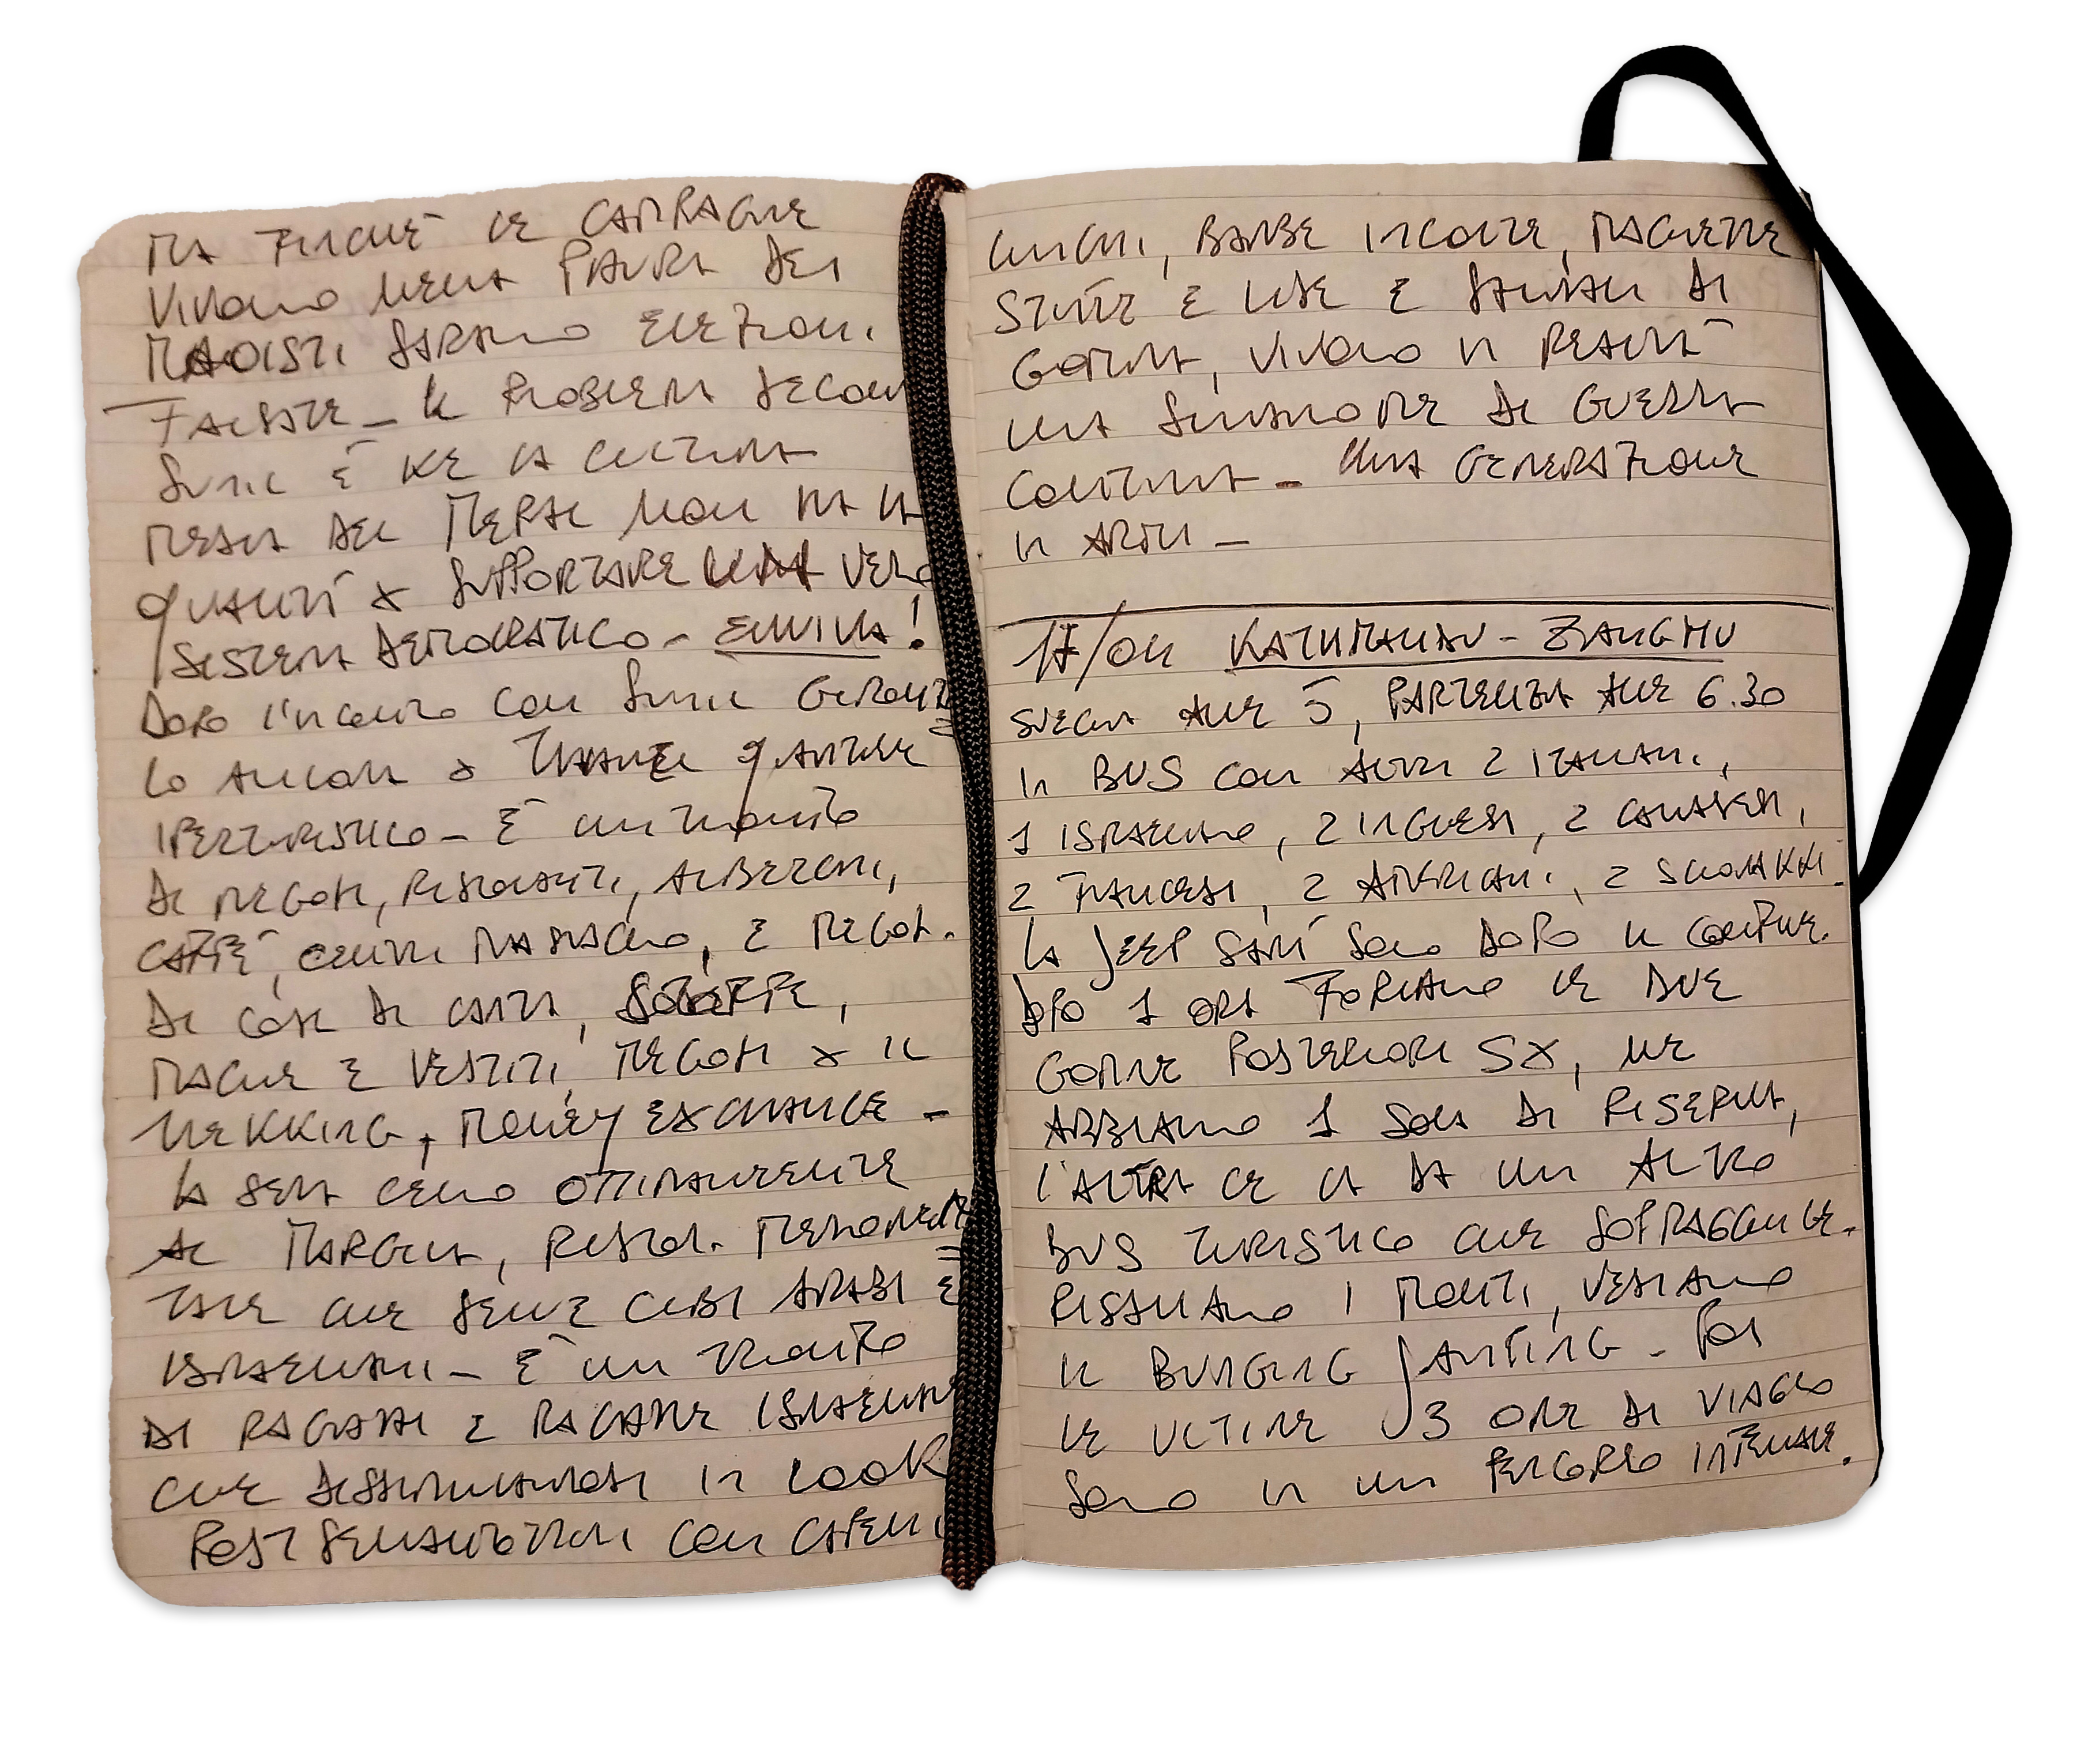 MA FINCHÉ LE CAMPAGNE
VIVONO NELLA PAURA DEI
MAOISTI SARANNO ELEZIONI
FALSATE - IL PROBLEMA SECONDO
SUNIL È KE LA CULTURA
MEDIA DEL NEPAL NON HA LA
QUALITÀ X SUPPORTARE UN VERO
SISTEMA DEMOCRATICO - EVVIVA!
DOPO L'INCONTRO CON SUNIL GIRONZO=
LO ANCORA X THAMEL QUARTIERE
IPERTURISTICO - È UN TRIONFO
DI NEGOZI, RISTORANTI, ALBERGHI,
CAFFÈ, CENTRI MASSAGGIO, E NEGOZI
DI COSE DI CARTA, STOFFE,
MAGLIE E VESTITI, NEGOZI X IL
TREKKING, MONEY EXCHANGE -
LA SERA CENO OTTIMAMENTE
AL , RISTOR. MEDIORIEN=
TALE CHE SERVE CIBI ARABI E
ISRAELIANI - È UN TRIONFO
DI RAGAZZI E RAGAZZE ISRAELIANE
CHE DISSIMULANDOSI IN LOOK
POST CON CAPELLI
LUNGHI, BARBE INCOLTE, MAGLIETTE
STRETTE E LISE E SANDALI DI
GOMMA, VIVONO IN REALTÀ
UNA SITUAZIONE DI GUERRA
CONTINUA - UNA GENERAZIONE
IN ARMI -
17/04 KATHMANDU - ZHANGMU
SVEGLIA ALLE 5, PARTENZA ALLE 6.30
IN BUS CON ALTRI 2 ITALIANI,
1 ISRAELIANO, 2 INGLESI, 2 CANADESI,
2 FRANCESI, 2 AMERICANI, 2 SLOVAKKI.
LA JEEP SARÀ SOLO DOPO IL CONFINE.
DOPO 1 ORA FORIAMO LE DUE
GOMME POSTERIORI SX, NE
ABBIAMO 1 SOLA DI RISERVA,
L'ALTRA CE LA DA UN ALTRO
BUS TURISTICO CHE SOPRAGGIUNGE.
RISALIAMO I MONTI, VEDIAMO
IL BUNGING JAMPING - POI
LE ULTIME 3 ORE DI VIAGGIO
SONO IN UN PERCORSO INFERNALE.